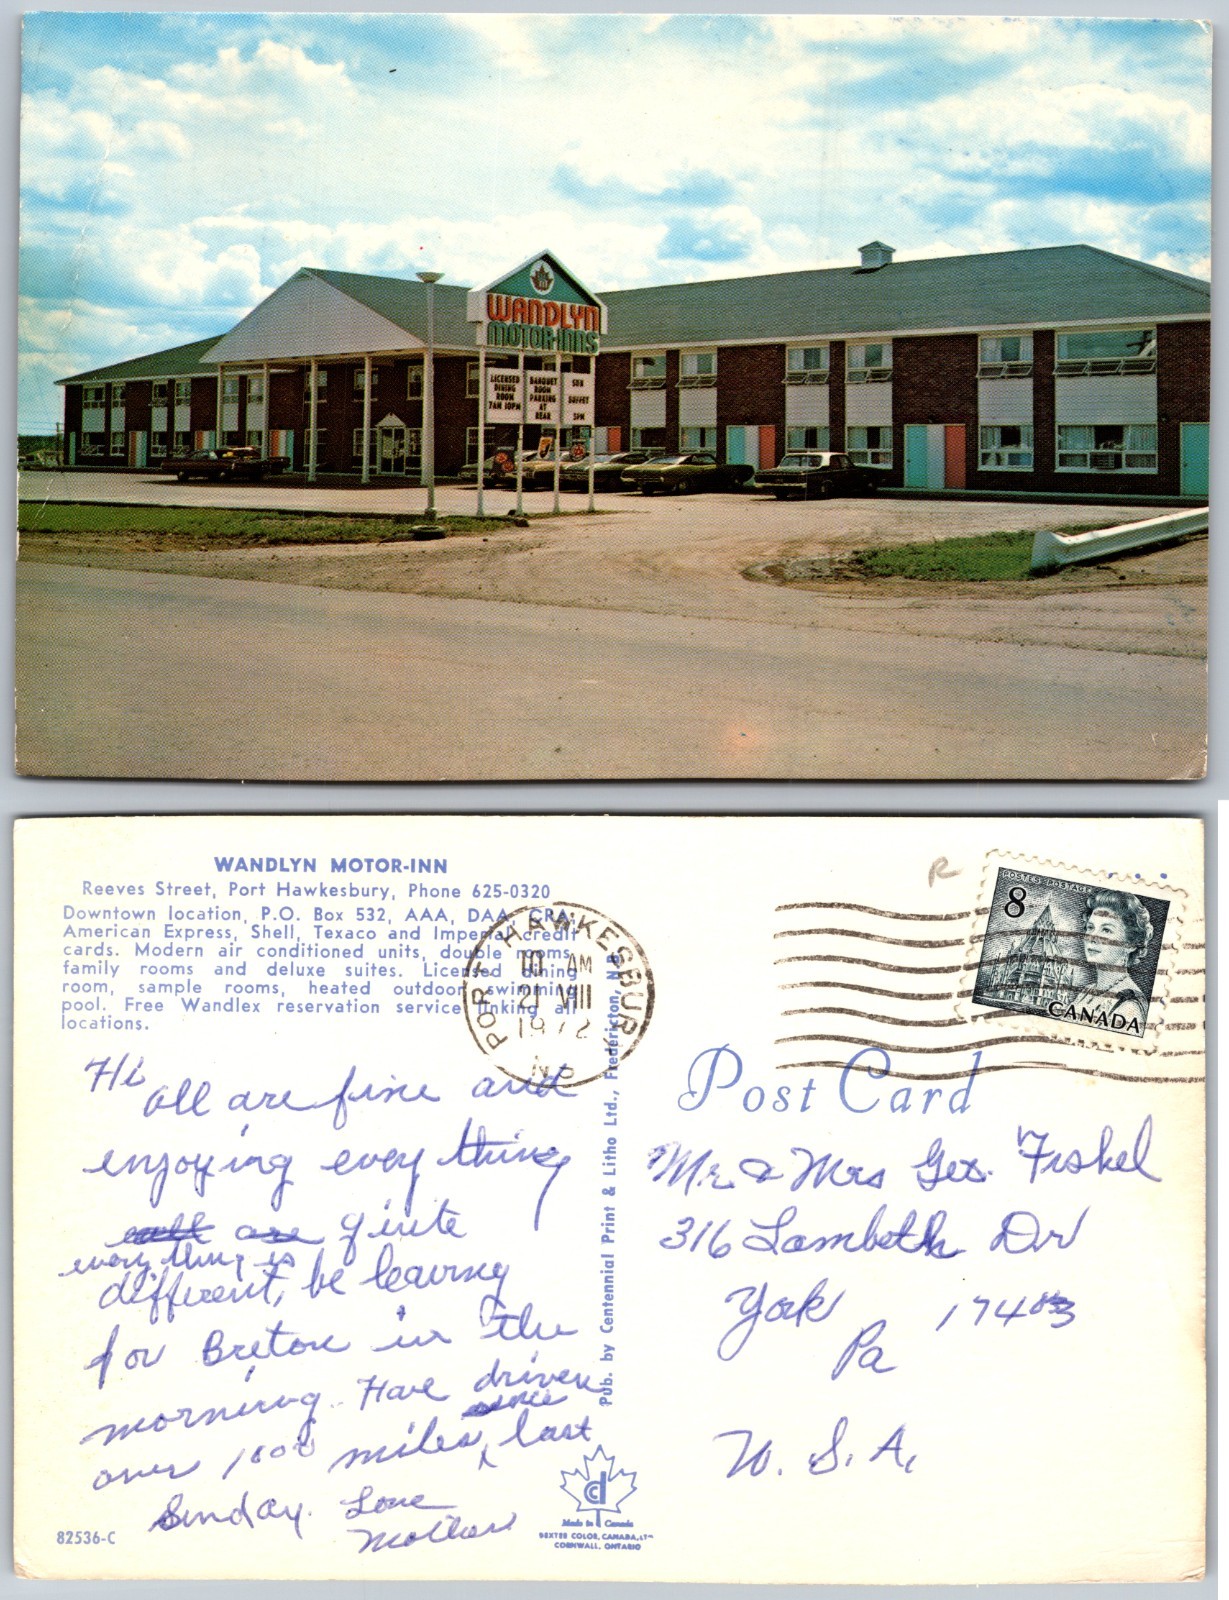 WANDLYN
MOTOR-INNS
LICENSED
DINING
ROOM
7AM 10PM
BANQUET
ROOM
PARKING
AT
REAR
SUN
BUFFET
5PM
WANDLYN MOTOR-INN
Reeves Street, Port Hawkesbury, Phone 625-0320
Downtown location, P.O. Box 532, AAA, DAA, CRA;
American Express, Shell, Texaco and Imperial credit
cards. Modern air conditioned units, double rooms,
family rooms and deluxe suites. Licensed dining
room, sample rooms, heated outdoor swimming
pool. Free Wandlex reservation service linking all
locations.
PORT HAWKESBURY
10 AM
21 VIII
1972
N.S.
POSTES POSTAGE
8
CANADA
R
Post Card
Hi
all are fine and
enjoying every thing
are quite
everything is
different, be leaving
for Breton in the
morning. Have driven
since
over 1000 miles, last
Sunday. Love
Mother
Pub. by Centennial Print & Litho Ltd., Fredericton, N.B.
Mr. & Mrs Geo. Fishel
316 Lambeth Dr
York 17403
Pa
U. S. A.
82536-C
Made in Canada
DEXTER COLOR, CANADA, LTD
CORNWALL, ONTARIO